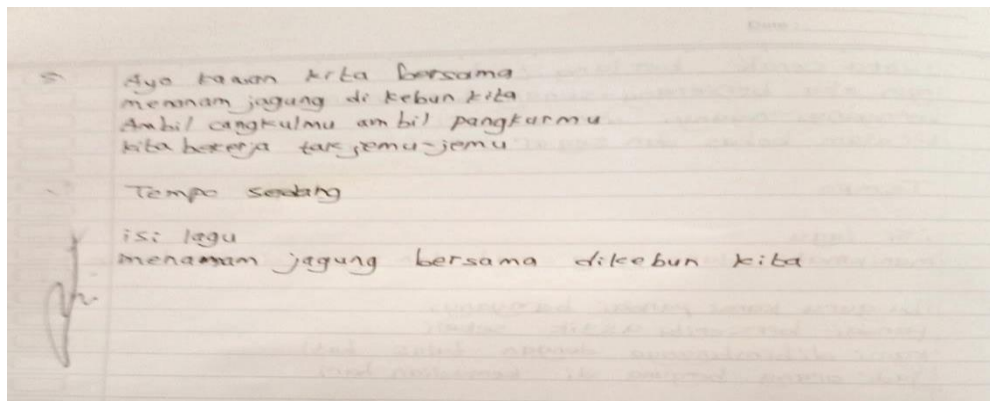 Ayo kawan kita bersama
menanam jagung di kebun kita
Ambil cangkulmu ambil pangkurmu
kita bekerja tak jemu-jemu
Tempo sedang
isi lagu
menamam jagung bersama dikebun kita